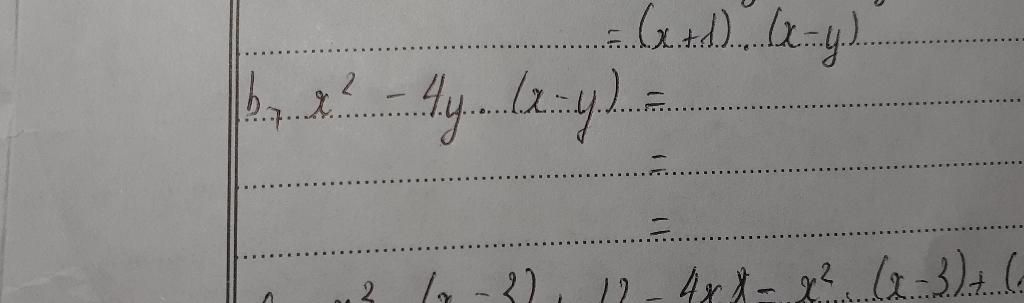 = (x+1). (x-y)
b, x² - 4y. (x-y) =
=
=
x² (x-3) + 12 - 4x = x². (x-3)+ (